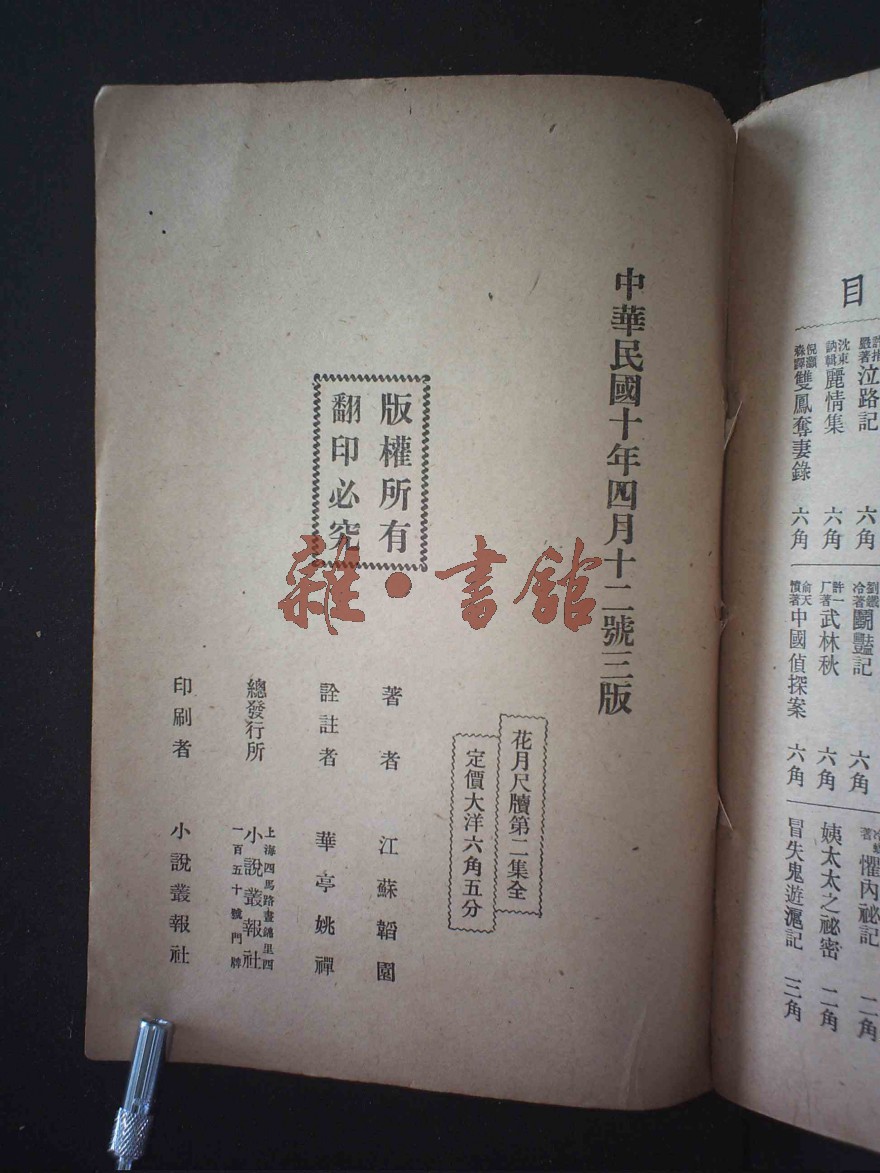 中華民國十年四月十二號三版
花月尺牘第二集全
定價大洋六角五分
版權所有
翻印必究
著者 江蘇韜園
詮註者 華亭姚禪
總發行所 上海四馬路畫錦里四
小說叢報社
一百五十號門牌
印刷者 小說叢報社
雜·書館
目
嚴著泣路記 六角
沈東訥輯麗情集 六角
倪灝森譯雙鳳奪妻錄 六角
劉鐵冷著鬬豔記 六角
許一厂著武林秋 六角
俞天憤著中國偵探案 六角
著懼內祕記 二角
姨太太之祕密 二角
冒失鬼遊滬記 三角